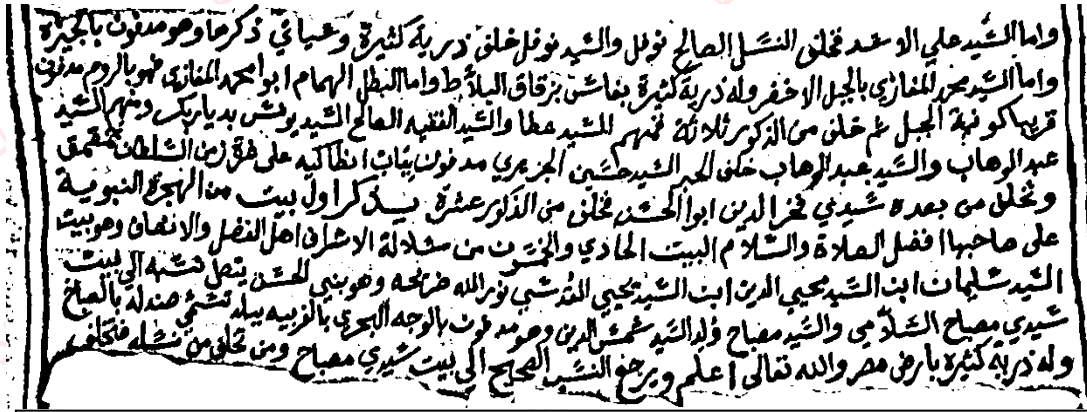 واما السيد علي الاسعد فخلف النسل الصالح نوفل والسيد نوفل خلف ذرية كثيرة وسياتي ذكرها وهو مدفون بالجيزة
واما السيد محمد المغازي بالجبل الاخضر وله ذرية كثيرة بفاس بزقاق البلاط واما البطل الهمام ابو محمد المغازي فهو بالروم مدفون
قريبا الجبل ثم خلف من الذكور ثلاثة فمنهم السيد عطا والسيد الفقيه الصالح السيد يونس بديار بكر ومنهم السيد
عبد الوهاب والسيد عبد الوهاب خلف الحبر السيد حسين الجزيري مدفون بباب انطاكيه على زمن السلطان جقمق
وتخلف من بعده سيدي فخر الدين ابو الحسن فخلف من الذكور عشرة يذكر اول بيت من الهجرة النبوية
على صاحبها افضل الصلاة والسلام البيت الحادي والخمسون من سلالة الاشراف اهل الفضل والانصاف وهو بيت
السيد سليمان ابن السيد محيي الدين ابن السيد يحيي المقدسي نور الله ضريحه وهو بني الحسن يتصل نسبه الى بيت
سيدي مصباح السلامي والسيد مصباح ولد السيد شمس الدين وهو مدفون بالوجه البحري بالغربيه ببلد تسمى صندله
وله ذرية كثيرة بارض مصر والله تعالى اعلم ويرجع النسب الصحيح الي بيت سيدي مصباح ومن تخلف من نسله